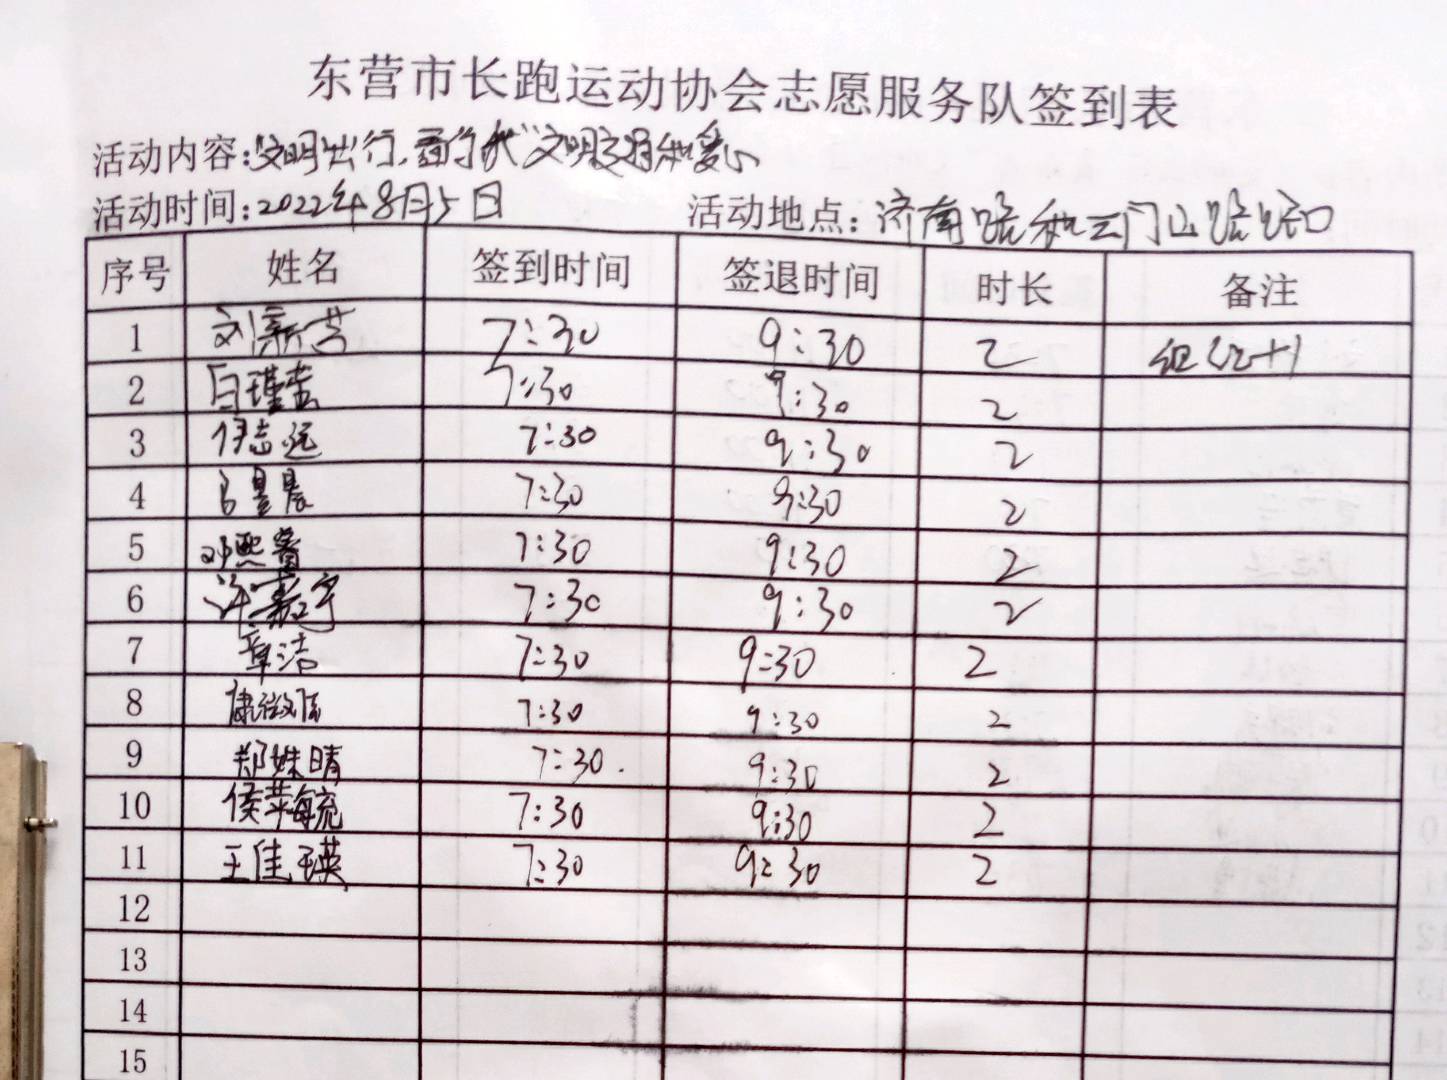 东营市长跑运动协会志愿服务队签到表
活动内容:文明出行,
活动时间:2022年8月5日 活动地点:济南路和云门山路路口
序号 姓名 签到时间 签退时间 时长 备注
1 刘新芸 7:30 9:30 2
2 7:30 9:30 2
3 伊志远 7:30 9:30 2
4 7:30 9:30 2
5 7:30 9:30 2
6 许嘉宇 7:30 9:30 2
7 章洁 7:30 9:30 2
8 7:30 9:30 2
9 郑姝晴 7:30 9:30 2
10 7:30 9:30 2
11 王佳瑛 7:30 9:30 2
12
13
14
15